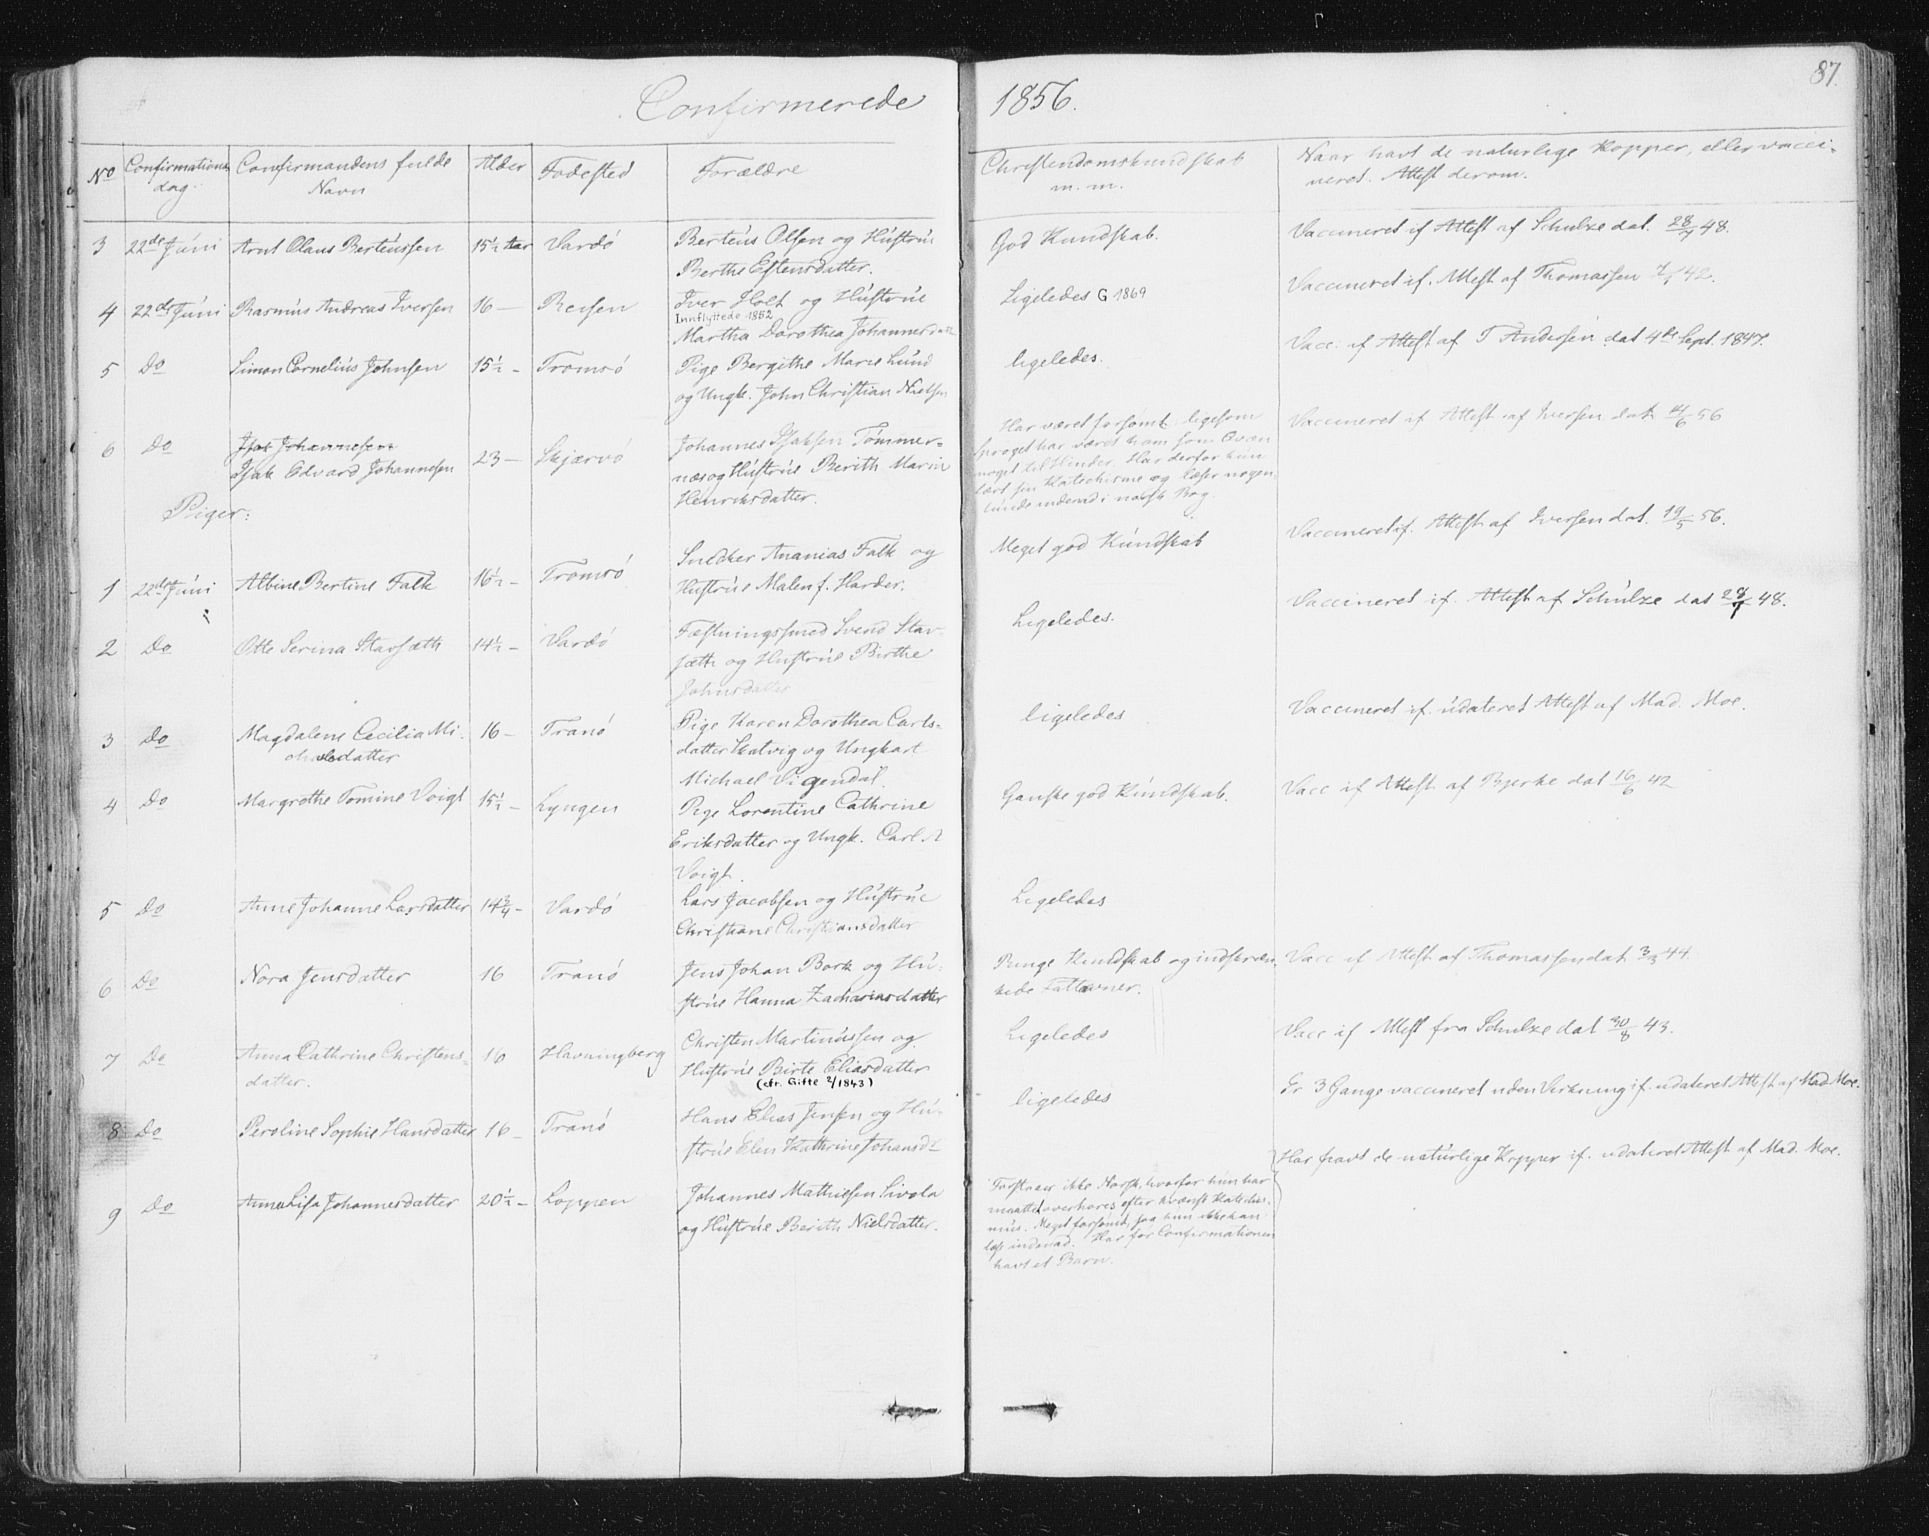 Confirmerede
1856.
87.
No
Confirmations
dag.
Confirmandens fulde
Navn
Alder
Fødested
Forældre
Christendomskundskab
m. m.
Naar havt de naturlige Kopper, eller vacci-
neret. Attest derom.
3 22de Juni Arnt Olaus Berteussen 15½ Aar Vardö
Berteus Olsen og Hustrue
Berthe Estensdatter.
God Kundskab.
Vaccineret if Attest af Schulze dat. 28/7 48.
4 22de Juni Rasmus Andreas Iversen 16 — Reisen
Iver Holt og Hustrue
Innflyttede 1852
Martha Dorothea Johannesdatt
Ligeledes G 1869
Vaccineret if. Attest af Thomassen 42.
5 Do Simon Cornelius Johnsen 15½ - Tromsö
Pige Bergithe Marie Lund
og Ungk. John Christian Nielsen
ligeledes.
Vacc. if Attest af T Andersen dat 4de Sept. 1847.
6 Do
Isak Johannesen
Isak Edvard Johannesen
23 — Skjærvö
Johannes Isaksen Tømmer-
næs og Hustrue Berith Marie
Henriksdatter.
Har været forsömt ligesom
sproget har været ham som Qvæn
noget til Hinder. Har derfor kun
lært sin Katechisme og læser nogen
lunde indend i norsk Bog.
Vaccineret if Attest af Iversen dat 12/6 56
Piger:
1 22de Juni Albine Bertine Falk 16½ - Tromsö
Snedker Ananias Falk og
Hustrue Malen f. Harder.
Meget god Kundskab
Vaccineret if. Attest af Iversen dat. 19/5 56.
2 Do Otte Serina Starsæth 14½ - Vardö
Fæstningssmed Svend Star-
sæth og Hustrue Birthe
Johnsdatter
Ligeledes.
Vaccineret if. Attest af Schulze dat 28/7 48.
3 Do Magdalene Cecilia Mi-
chelsdatter
16 — Tranö
Pige Karen Dorothea Carls-
datter Skatvig og Ungkarl
Michael Vigendal.
ligeledes
Vaccineret if. udateret Attest af Mad. Moe.
4 Do Margrethe Tomine Voigt 15½ - Lyngen
Pige Lorentine Cathrine
Eriksdatter og Ungk. Carl A
Voigt.
Ganske god Kundskab.
Vacc if Attest af Bjerke dat 16/6 42
5 Do Anne Johanne Larsdatter 14¾ - Vardö
Lars Jacobsen og Hustrue
Christiane Christiansdatter
Ligeledes
6 Do Nora Jensdatter 16 Tranö
Jens Johan Bork og Hu-
strue Hanna Zachariasdatter
Ringe Kundskab og indskræn
kede Fatteevner.
Vacc if Attest af Thomassen dat 3/3 44
7 Do Anna Cathrine Christens-
datter.
16 Havningberg
Christen Martinussen og
Hustrue Birte Eliasdatter
(cfr. Gifte 2/1843)
Ligeledes
Vacc if Attest fra Schulze dat 30/8 43.
8 Do Peroline Sophie Hansdatter 16 - Tranö
Hans Elias Jensen og Hu-
strue Elen Kathrine Johansdt
ligeledes
Er 3 Gange vaccineret uden Virkning if. udateret Attest af Mad. Moe.
9 Do Anna Lisa Johannesdatter 20½ - Loppen
Johannes Mathiesen Sivola
og Hustrue Berith Nielsdatter.
Forstaaer ikke Norsk, hvorfor hun har
maattet overhøres efter kvænsk Kateches-
mus. Meget forsömt, saa hun ikke kan
læse indenad. Har før Confirmationen
havt et Barn.
Har havt de naturlige Kopper if. udateret Attest af Mad. Moe.